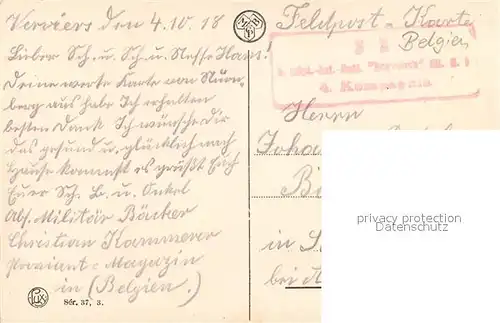 Verviers den 4.10.18
Lieber Sch. u. Sch. u. Neffe Hans!
Deine werte Karte von Nürn-
berg aus habe Ich erhalten
besten Dank Ich wünsche dir
das gesund u. glücklich nach
Hause kommst es grüßt Euch
Euer Sch. B. u. Onkel
Abs. Militär Bäcker
Christian Kammerer
Proviant-Magazin
in (Belgien.)
Lux
Sér. 37, 3.
Feldpost-Karte
Belgien
4. Kompagnie
Herrn
Joha
in
bei
privacy protection